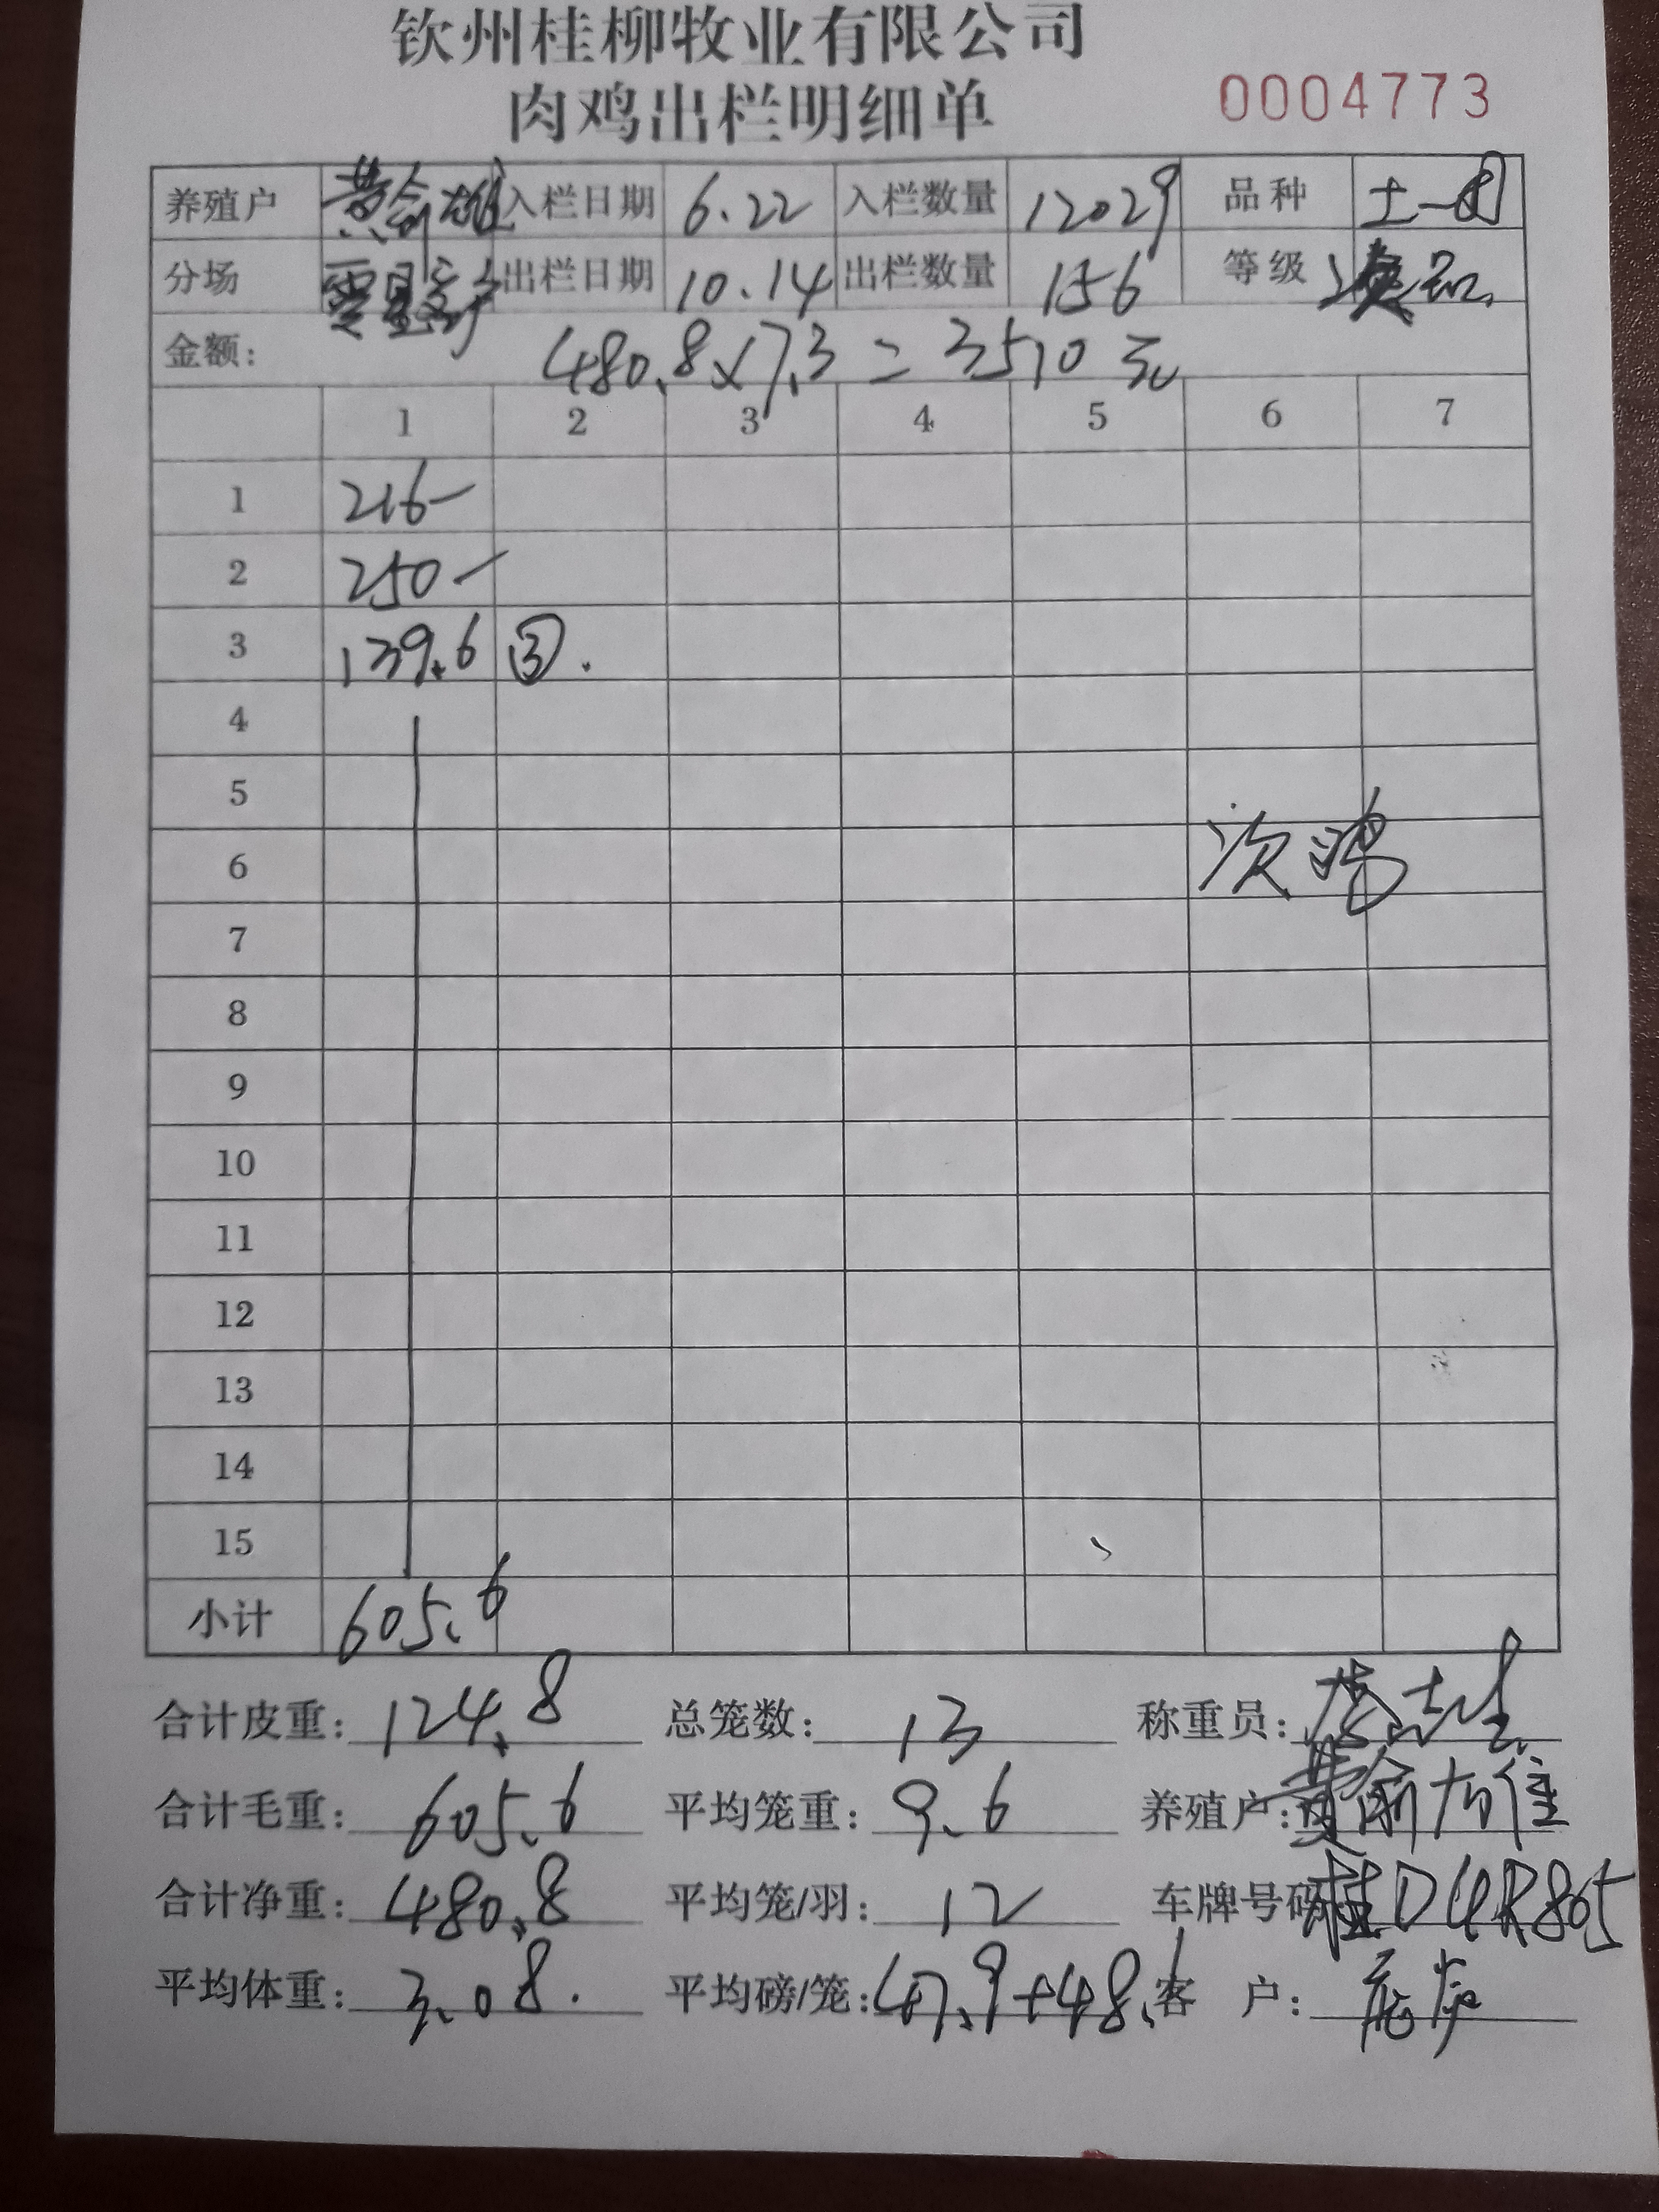 钦州桂柳牧业有限公司
肉鸡出栏明细单 0004773
养殖户 入栏日期 6.22 入栏数量 12029 品种 土一
分场 出栏日期 10.14 出栏数量 156 等级
金额: 480.8×7.3=3510元
1 2 3 4 5 6 7
1 216-
2 250-
3 139.6 ③.
4
5
6 次鸡
7
8
9
10
11
12
13
14
15
小计 605.6
合计皮重: 124.8 总笼数: 13 称重员:
合计毛重: 605.6 平均笼重: 9.6 养殖户:
合计净重: 480.8 平均笼/羽: 12 车牌号码 桂D4R865
平均体重: 3.08. 平均磅/笼: 47.9+48.1 客 户: